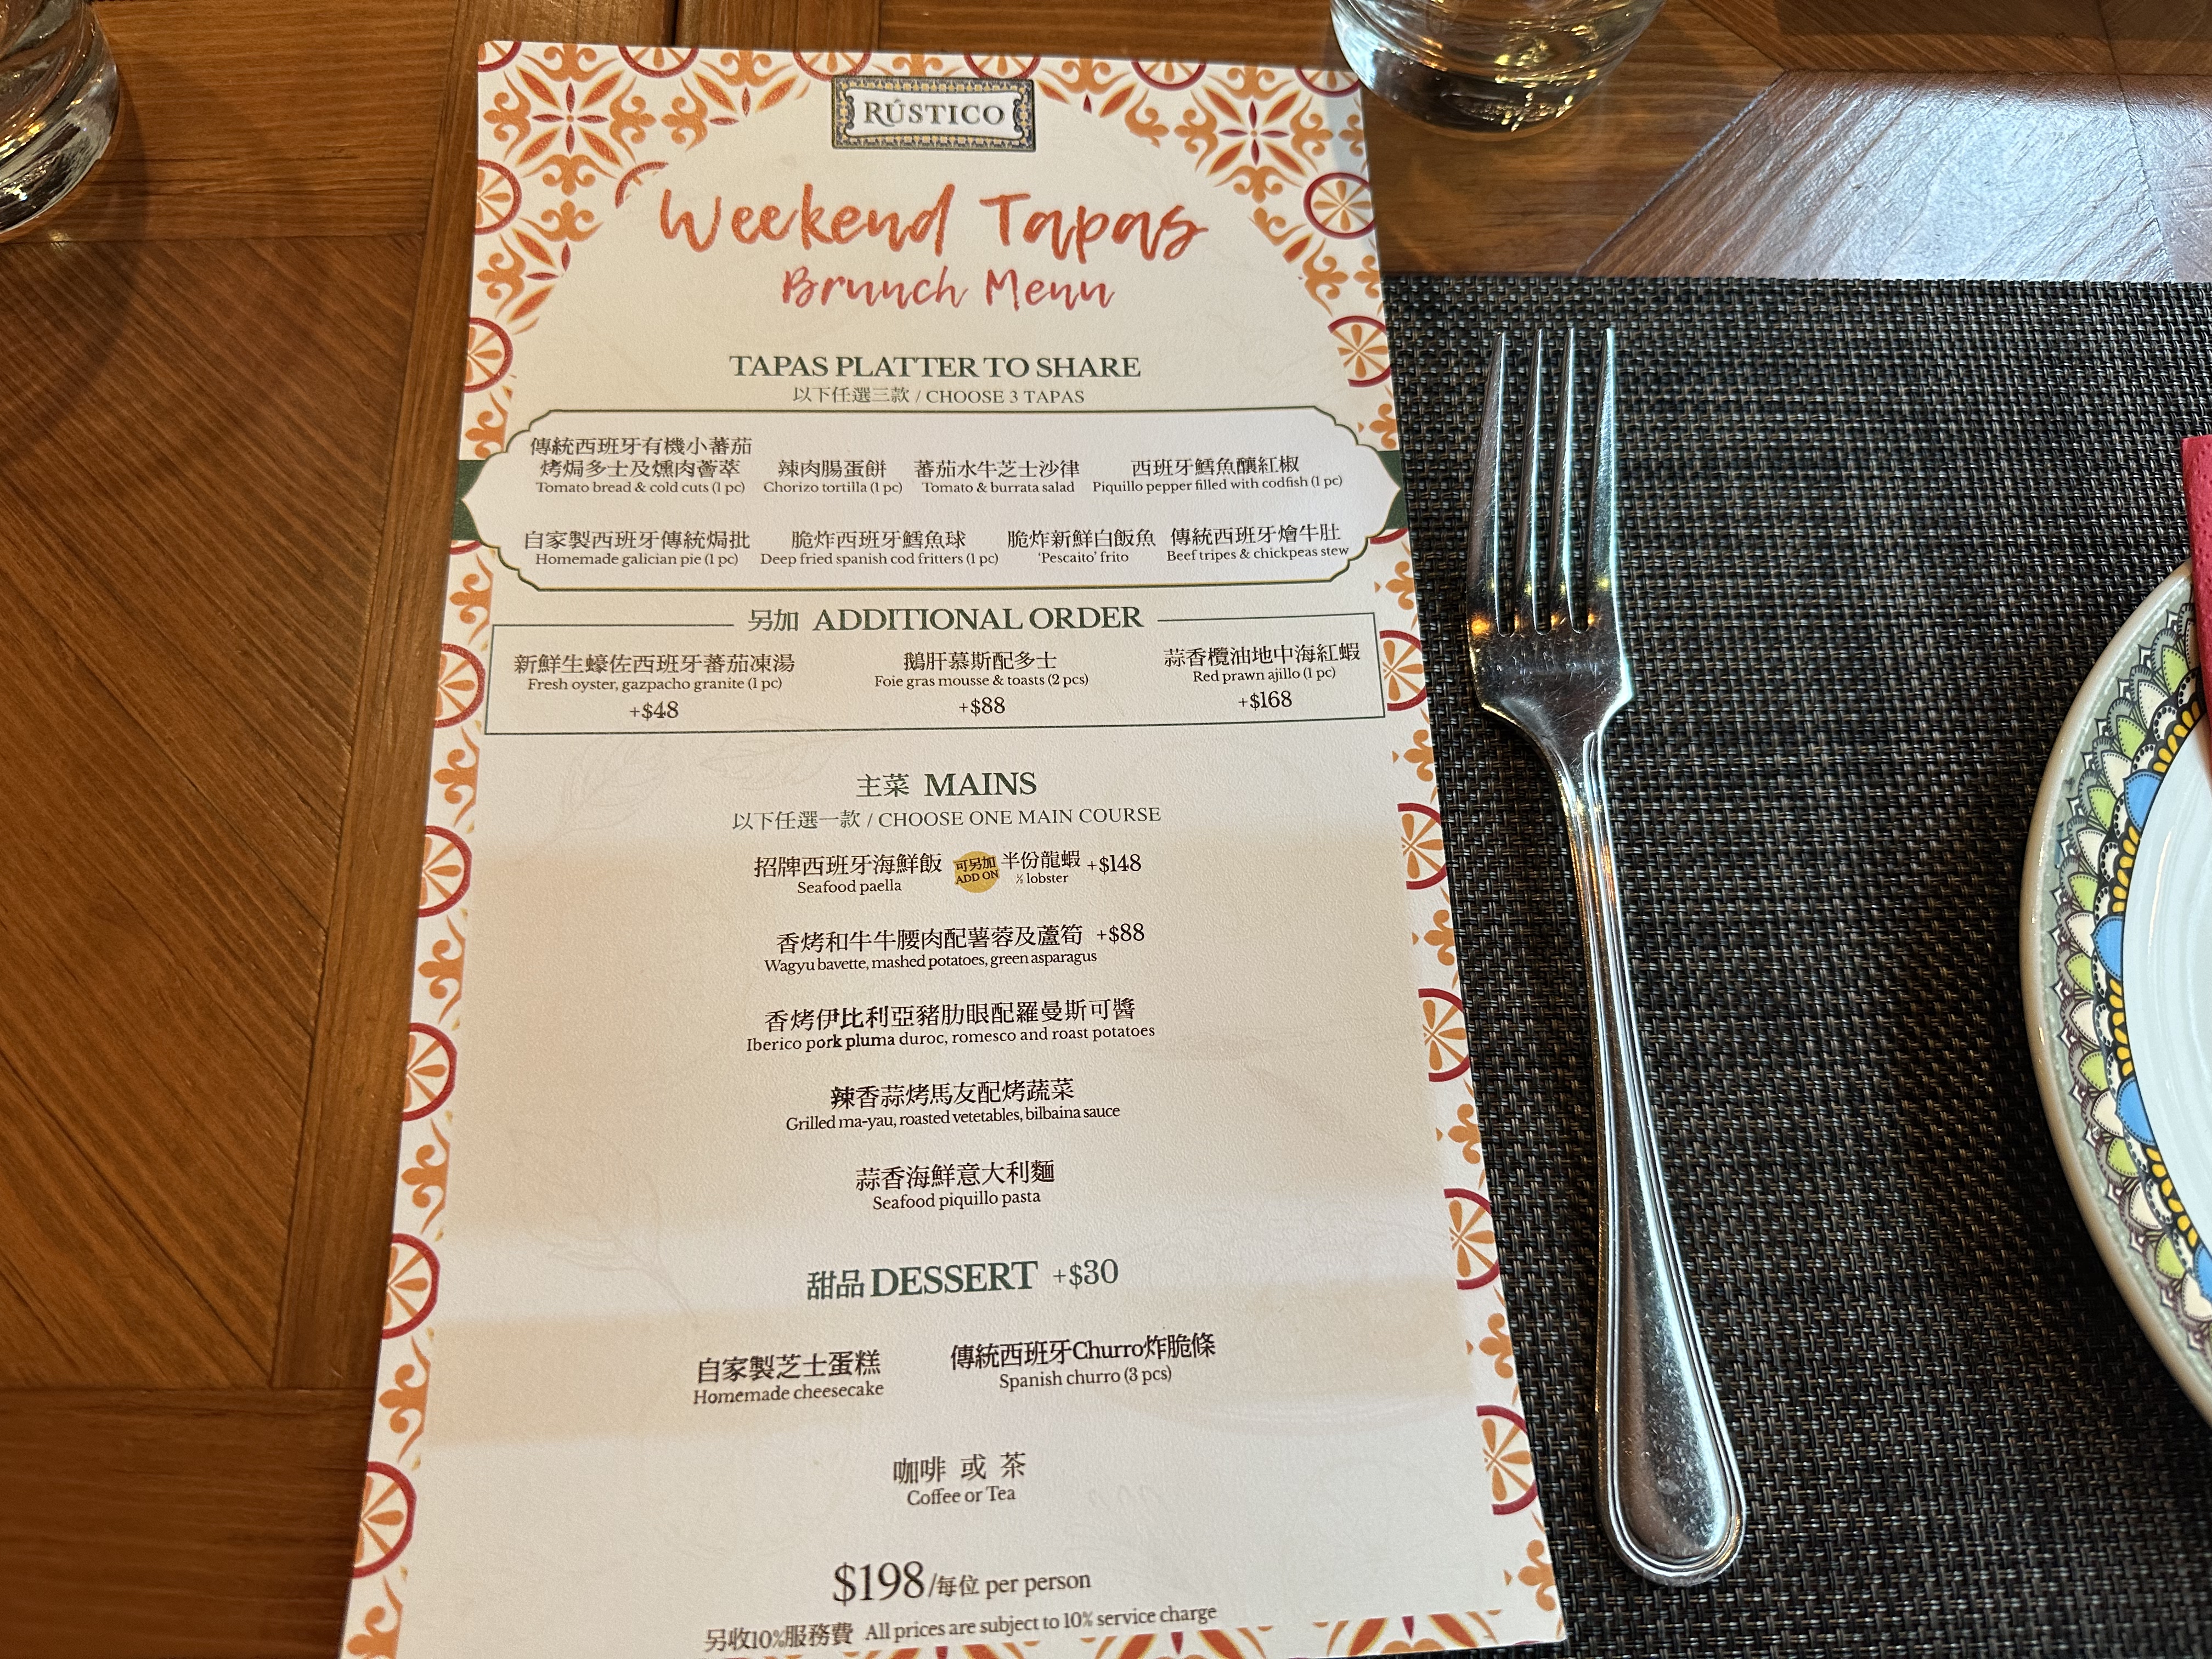 RÚSTICO
Weekend Tapas
Brunch Menu
TAPAS PLATTER TO SHARE
以下任選三款 / CHOOSE 3 TAPAS
傳統西班牙有機小蕃茄
烤焗多士及燻肉薈萃
Tomato bread & cold cuts (1 pc)
辣肉腸蛋餅
Chorizo tortilla (1 pc)
蕃茄水牛芝士沙律
Tomato & burrata salad
西班牙鱈魚釀紅椒
Piquillo pepper filled with codfish (1 pc)
自家製西班牙傳統焗批
Homemade galician pie (1 pc)
脆炸西班牙鱈魚球
Deep fried spanish cod fritters (1 pc)
脆炸新鮮白飯魚
'Pescaito' frito
傳統西班牙燴牛肚
Beef tripes & chickpeas stew
另加 ADDITIONAL ORDER
新鮮生蠔佐西班牙蕃茄凍湯
Fresh oyster, gazpacho granite (1 pc)
+$48
鵝肝慕斯配多士
Foie gras mousse & toasts (2 pcs)
+$88
蒜香欖油地中海紅蝦
Red prawn ajillo (1 pc)
+$168
主菜 MAINS
以下任選一款 / CHOOSE ONE MAIN COURSE
招牌西班牙海鮮飯 可另加 半份龍蝦 +$148
Seafood paella ADD ON ½ lobster
香烤和牛牛腰肉配薯蓉及蘆筍 +$88
Wagyu bavette, mashed potatoes, green asparagus
香烤伊比利亞豬肋眼配羅曼斯可醬
Iberico pork pluma duroc, romesco and roast potatoes
辣香蒜烤馬友配烤蔬菜
Grilled ma-yau, roasted vetetables, bilbaina sauce
蒜香海鮮意大利麵
Seafood piquillo pasta
甜品 DESSERT +$30
自家製芝士蛋糕
Homemade cheesecake
傳統西班牙Churro炸脆條
Spanish churro (3 pcs)
咖啡 或 茶
Coffee or Tea
$198/每位 per person
另收10%服務費 All prices are subject to 10% service charge